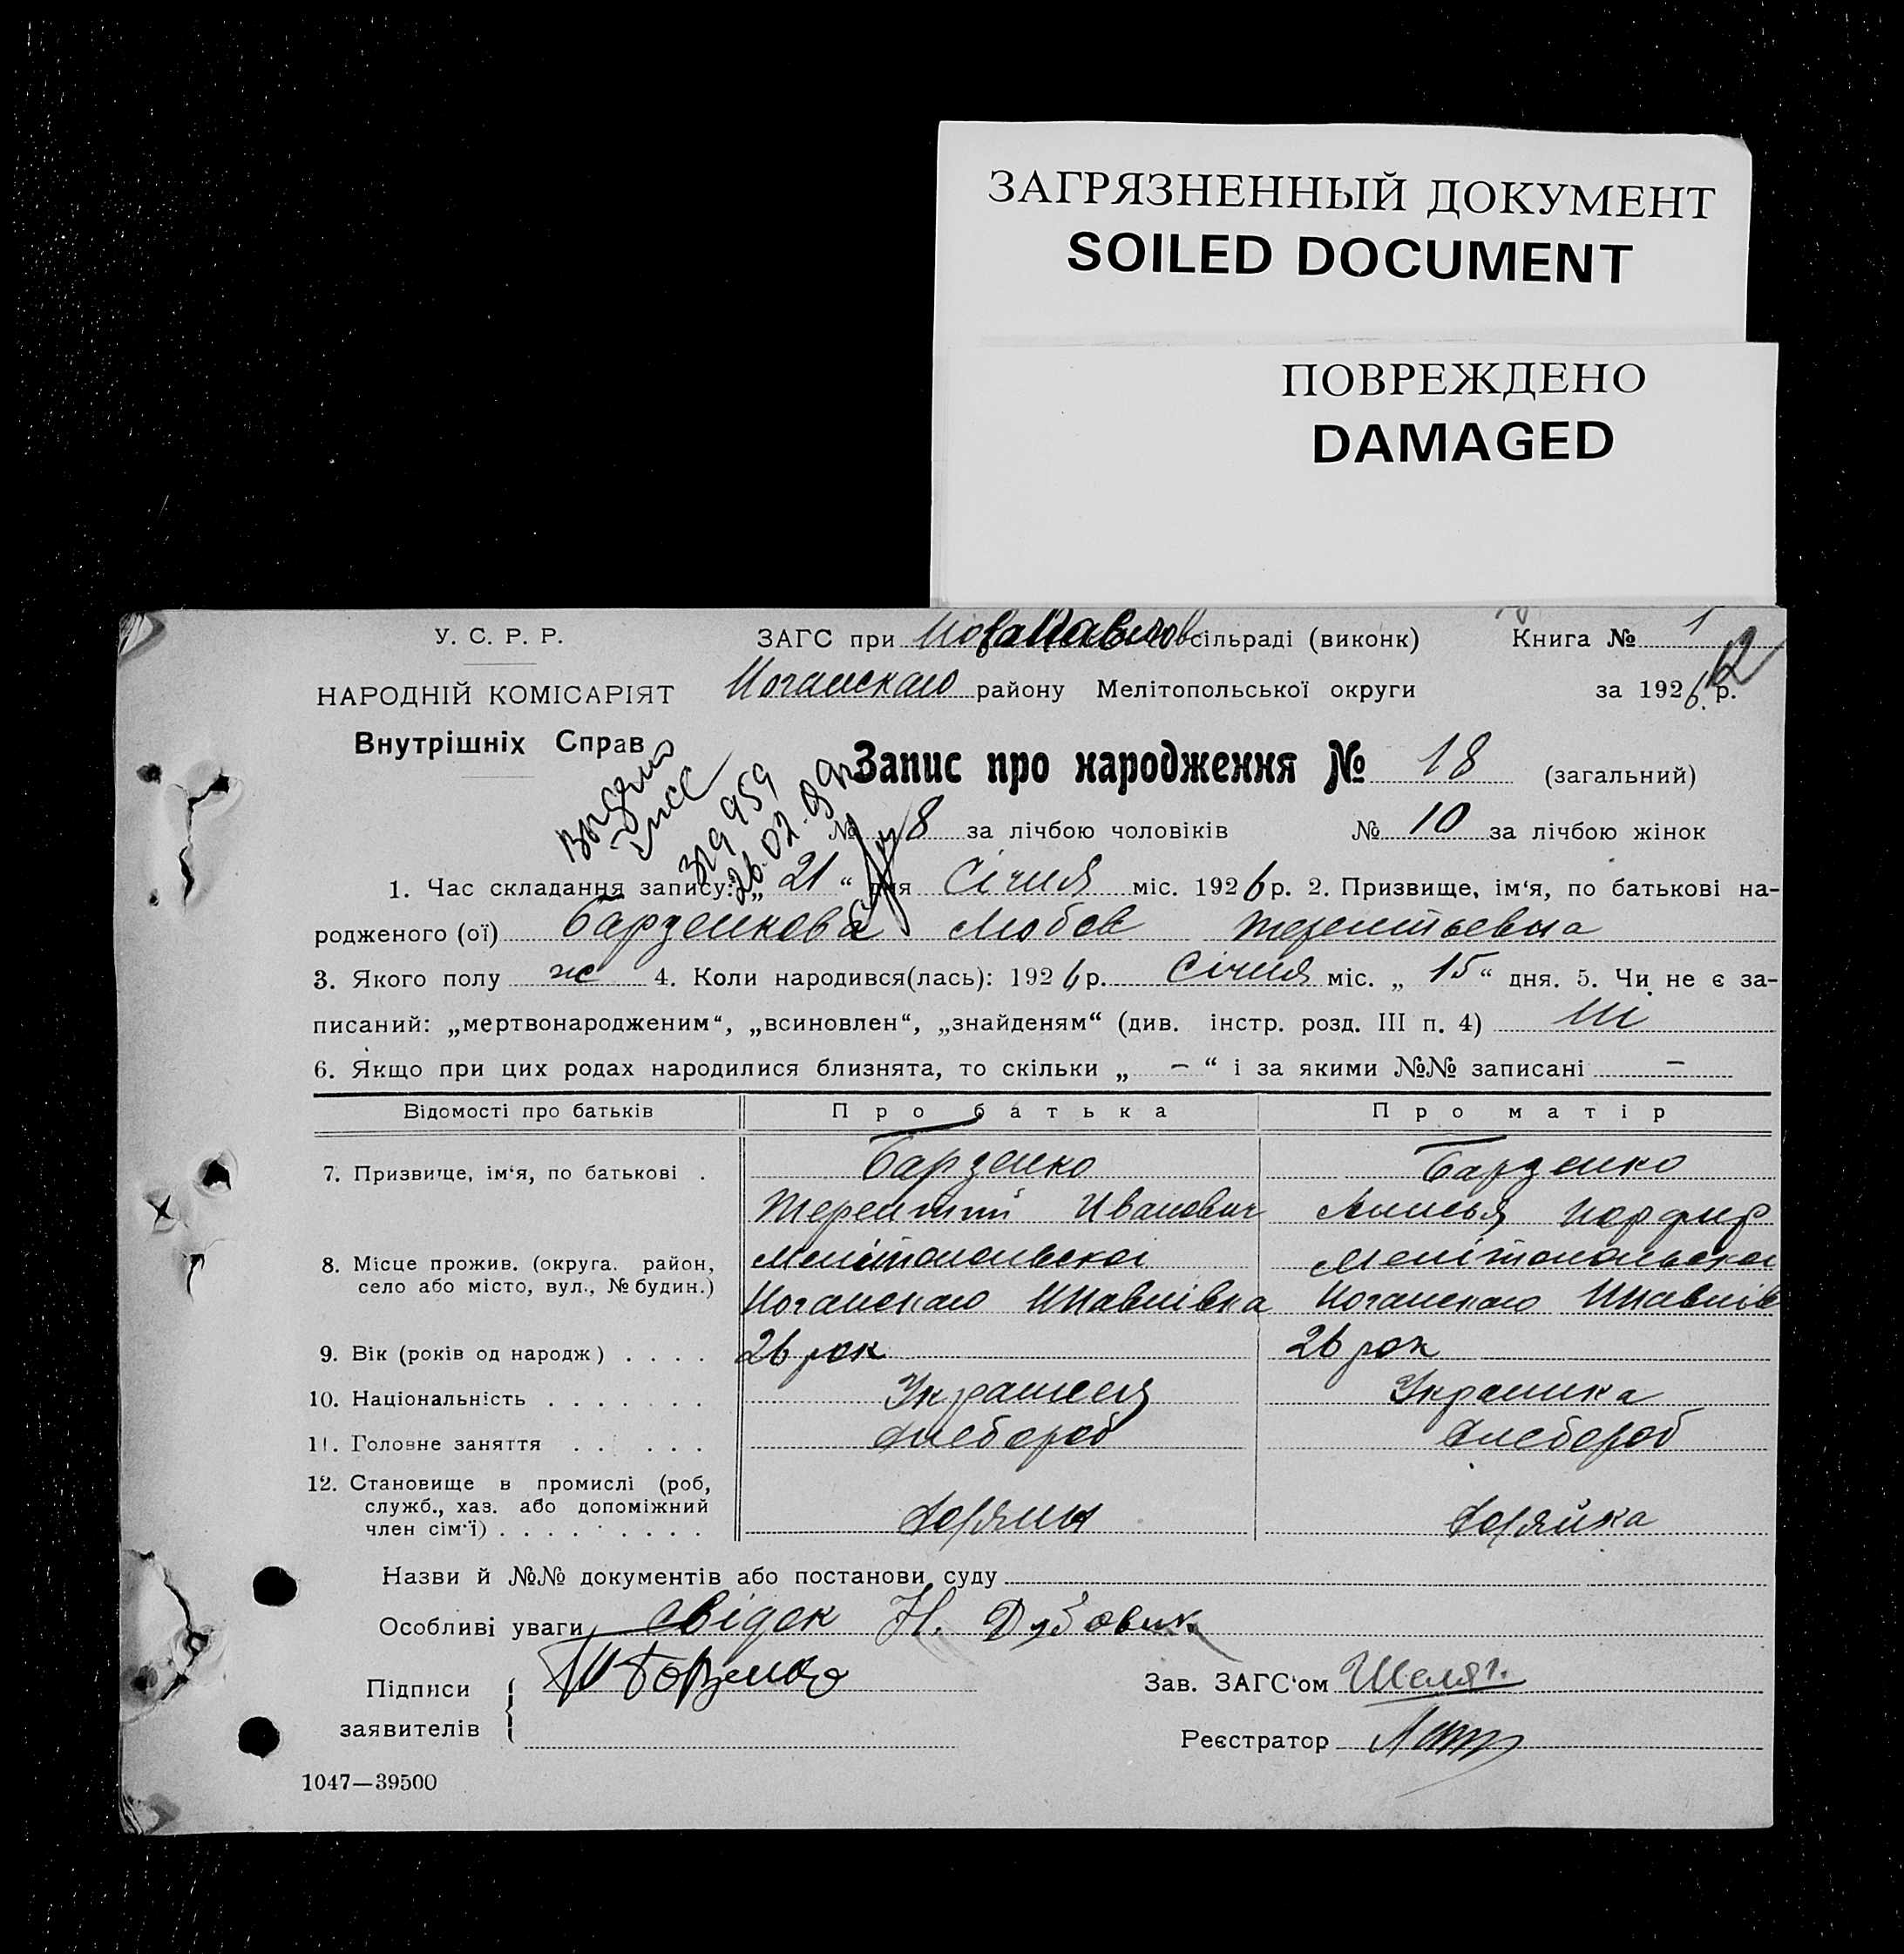 ЗАГРЯЗНЕННЫЙ ДОКУМЕНТ
SOILED DOCUMENT
ПОВРЕЖДЕНО
DAMAGED
У. С. Р. Р.
ЗАГС при сільраді (виконк) Книга № 1
НАРОДНІЙ КОМІСАРІЯТ
Ногайскаго району Мелітопольської округи за 1926 р.
12
Внутрішніх Справ
Запис про народження № 18 (загальний)
№ 8 за лічбою чоловіків № 10 за лічбою жінок
26.02.
1. Час складання запису: „ 21 “ дня Січня міс. 1926 р. 2. Призвище, ім‘я, по батькові на-
родженого (ої) Барзенкова Любов Терентьевна
3. Якого полу ж 4. Коли народився(лась): 1926 р. Січня міс. „ 15 “ дня. 5. Чи не є за-
писаний: „мертвонародженим“, „всиновлен“, „знайденям“ (див. інстр. розд. III п. 4) Ні
6. Якщо при цих родах народилися близнята, то скільки „ – “ і за якими №№ записані –
Відомості про батьків Про батька Про матір
7. Призвище, ім‘я, по батькові . Барзенко Барзенко
Терентий Иванович Порфир
8. Місце прожив. (округа. район, Мелітопольскої Мелітопольскої
село або місто, вул., № будин.) Ногайскаго Нпавлівка Ногайскаго Нпавлів
9. Вік (років од народж) . . . . 26 рок 26 рок
10. Національність . . . . . . . Украинец Украинка
11. Головне заняття . . . . . . Хлебороб Хлебороб
12. Становище в промислі (роб,
служб., хаз. або допоміжний
член сім‘ї) . . . . . . . . . Хозяин Хозяйка
Назви й №№ документів або постанови суду
Особливі уваги свідок Н. Дубовик
Підписи
заявителів
Зав. ЗАГС‘ом
Реєстратор
1047—39500